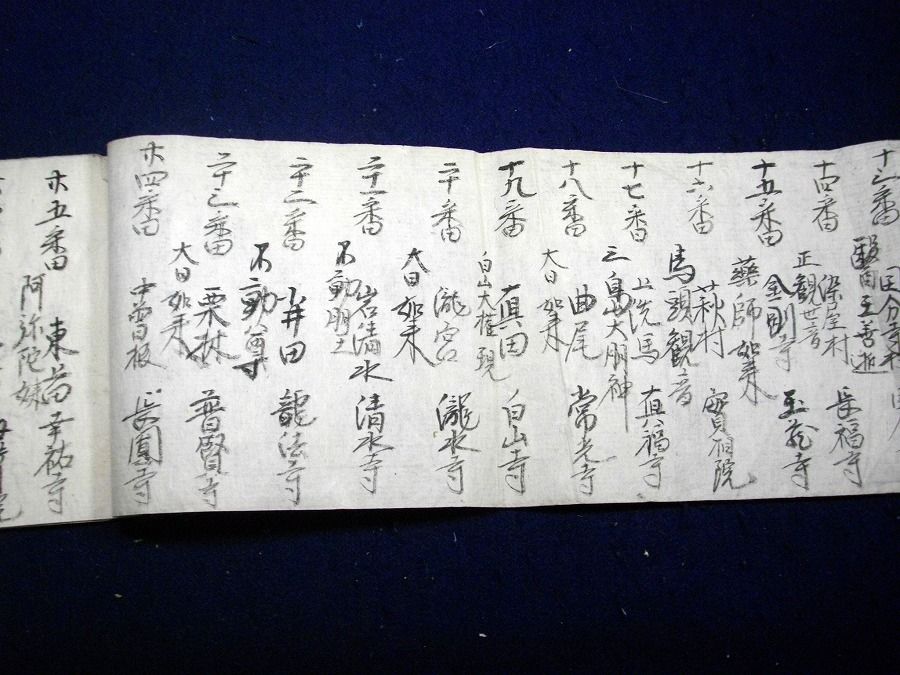 十三番 国分寺村
醫王善逝
十四番 染屋村 長福寺
正觀世音
十五番 金剛寺 玉龍寺
藥師如来
十六番 萩村 實相院
馬頭觀音
十七番 上洗馬 真福寺
三 白山大明神
十八番 曲尾 常光寺
大日如来
十九番 真田 白山寺
白山大権現
二十番 瀧宮 瀧水寺
大日如来
二十一番 岩清水 清水寺
不動明王
二十二番 小井田 龍法寺
不動尊
二十三番 栗林 普賢寺
大日如来
廿四番 中曽根 長圓寺
廿五番 東尚 幸祐寺
阿弥陀